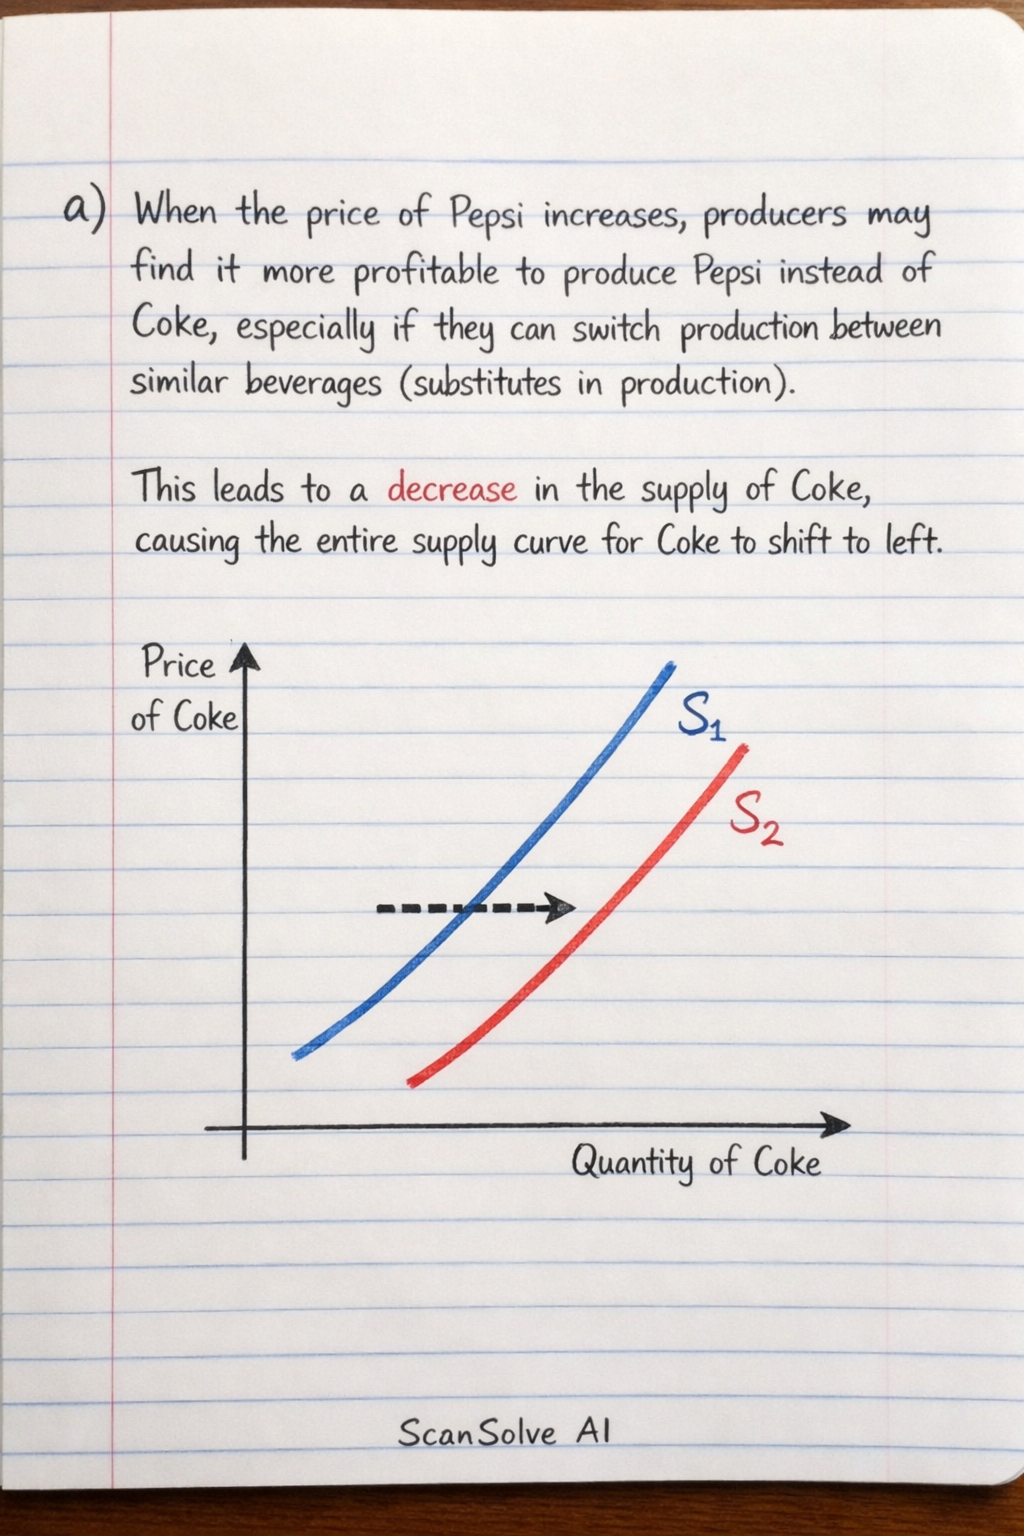 a) When the price of Pepsi increases, producers may
find it more profitable to produce Pepsi instead of
Coke, especially if they can switch production between
similar beverages (substitutes in production).
This leads to a decrease in the supply of Coke,
causing the entire supply curve for Coke to shift to left.
Price
of Coke
S₁
S₂
Quantity of Coke
ScanSolve AI